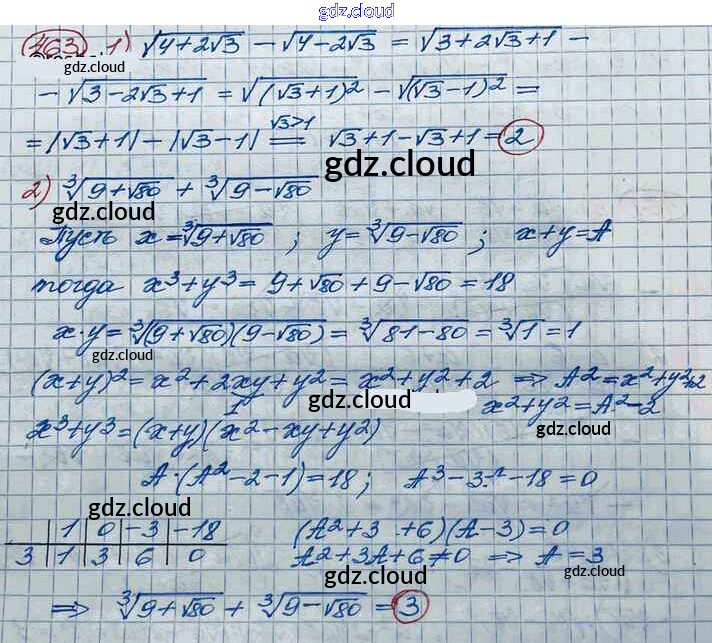 gdz.cloud
463 1) √(4+2√3) − √(4−2√3) = √(3+2√3+1) −
gdz.cloud
− √(3−2√3+1) = √((√3+1)²) − √((√3−1)²) =
= |√3+1| − |√3−1| =(√3>1)= √3+1−√3+1 = 2
gdz.cloud
2) ∛(9+√80) + ∛(9−√80)
gdz.cloud
Пусть x = ∛(9+√80) ; y = ∛(9−√80) ; x+y=A
тогда x³+y³ = 9+√80+9−√80 = 18
x·y = ∛((9+√80)(9−√80)) = ∛(81−80) = ∛1 = 1
gdz.cloud
(x+y)² = x²+2xy+y² = x²+y²+2 ⇒ A²=x²+y²+2
1 gdz.cloud x²+y²=A²−2
x³+y³ = (x+y)(x²−xy+y²)
A·(A²−2−1)=18; A³−3 −18=0
gdz.cloud
1 0 −3 −18 (A²+3 +6)(A−3)=0
3 1 3 6 0 A²+3A+6≠0 ⇒ A=3
gdz.cloud gdz.cloud
⇒ ∛(9+√80) + ∛(9−√80) = 3
gdz.cloud